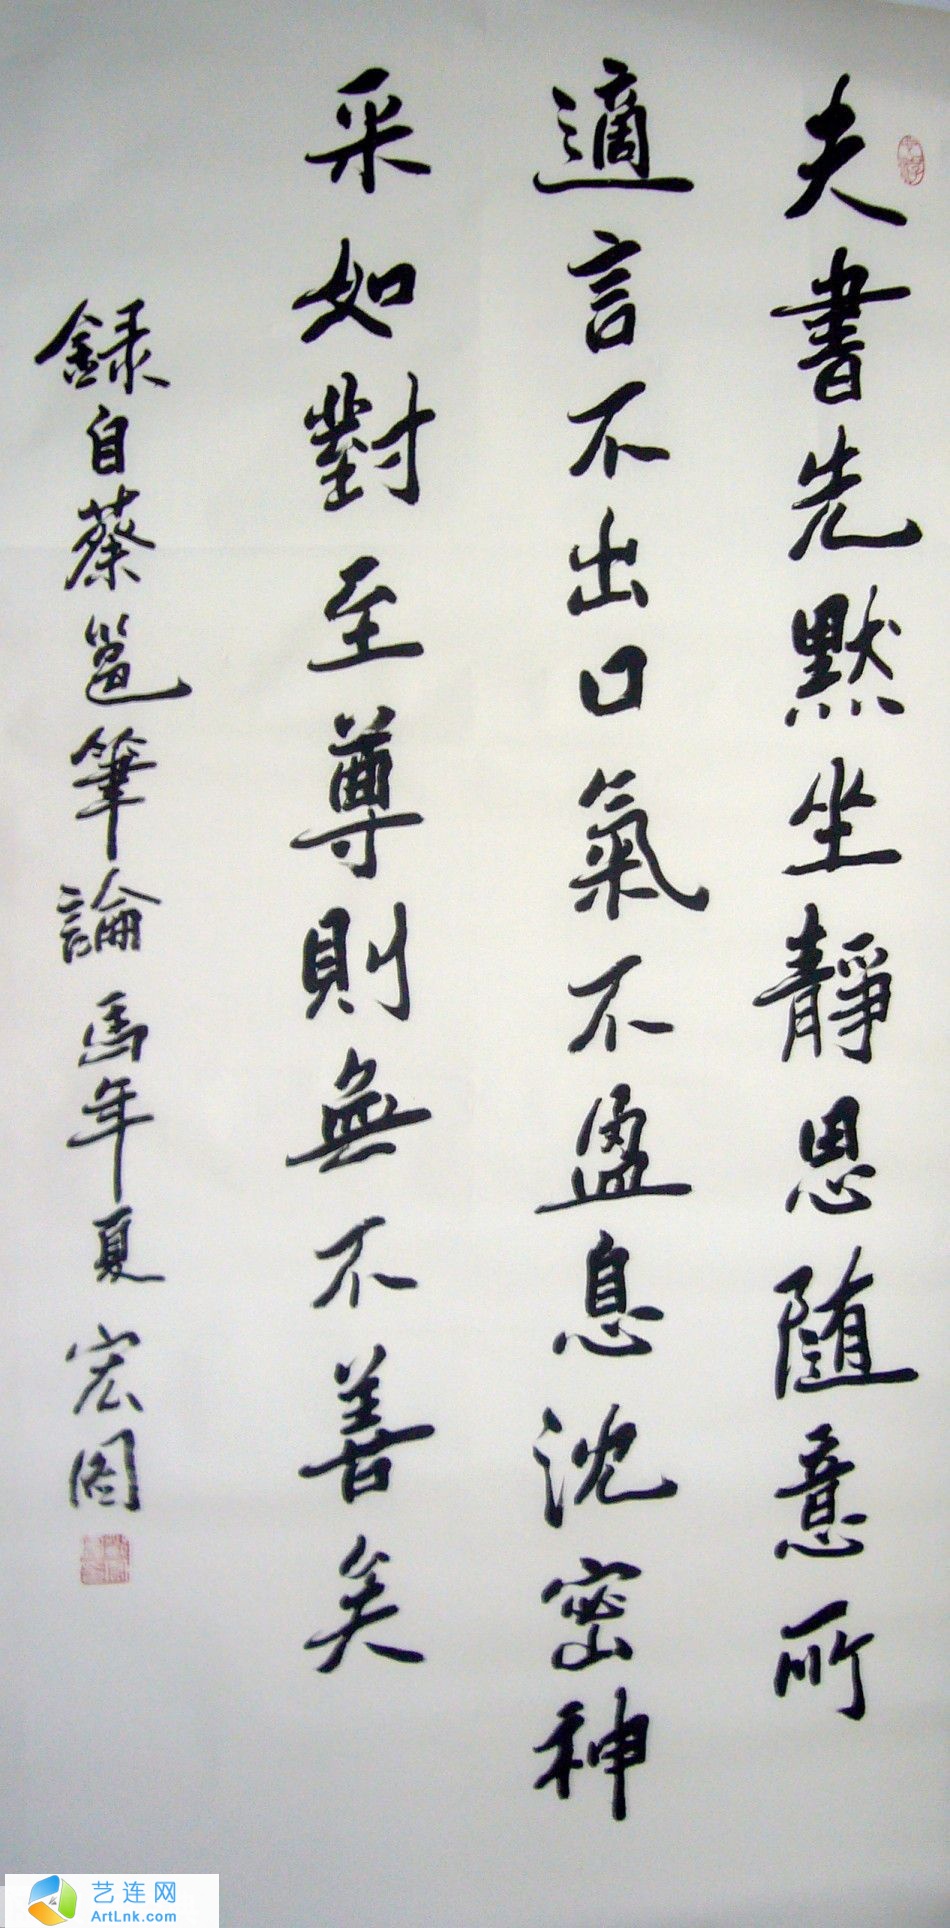 夫書先默坐靜思隨意所
適言不出口氣不盈息沈密神
采如對至尊則無不善矣
錄自蔡邕筆論馬年夏宏图
艺连网
ArtLnk.com